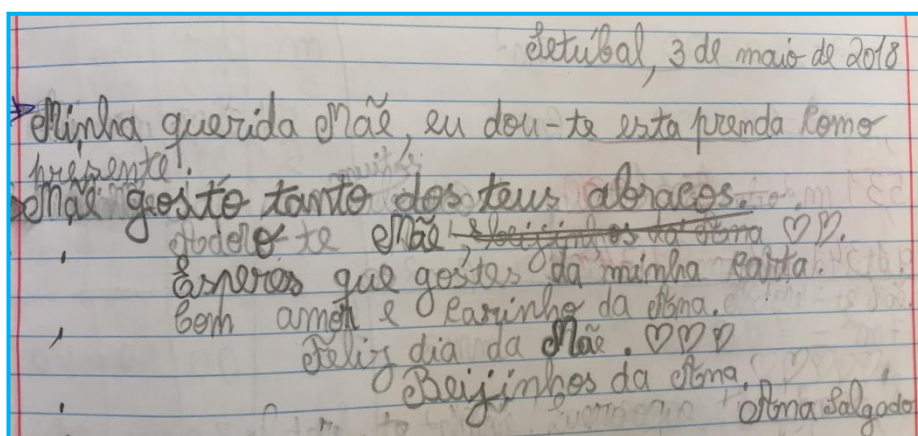 Setúbal, 3 de maio de 2018
Minha querida Mãe, eu dou-te esta prenda como
presente.
Mãe gosto tanto dos teus abraços.
Adoro-te Mãe, beijinhos da Ana ♡♡.
Esperos que gostes da minha carta.
Com amor e carinho da Ana.
Feliz dia da Mãe. ♡♡♡
Beijinhos da Ana.
Ana Salgado